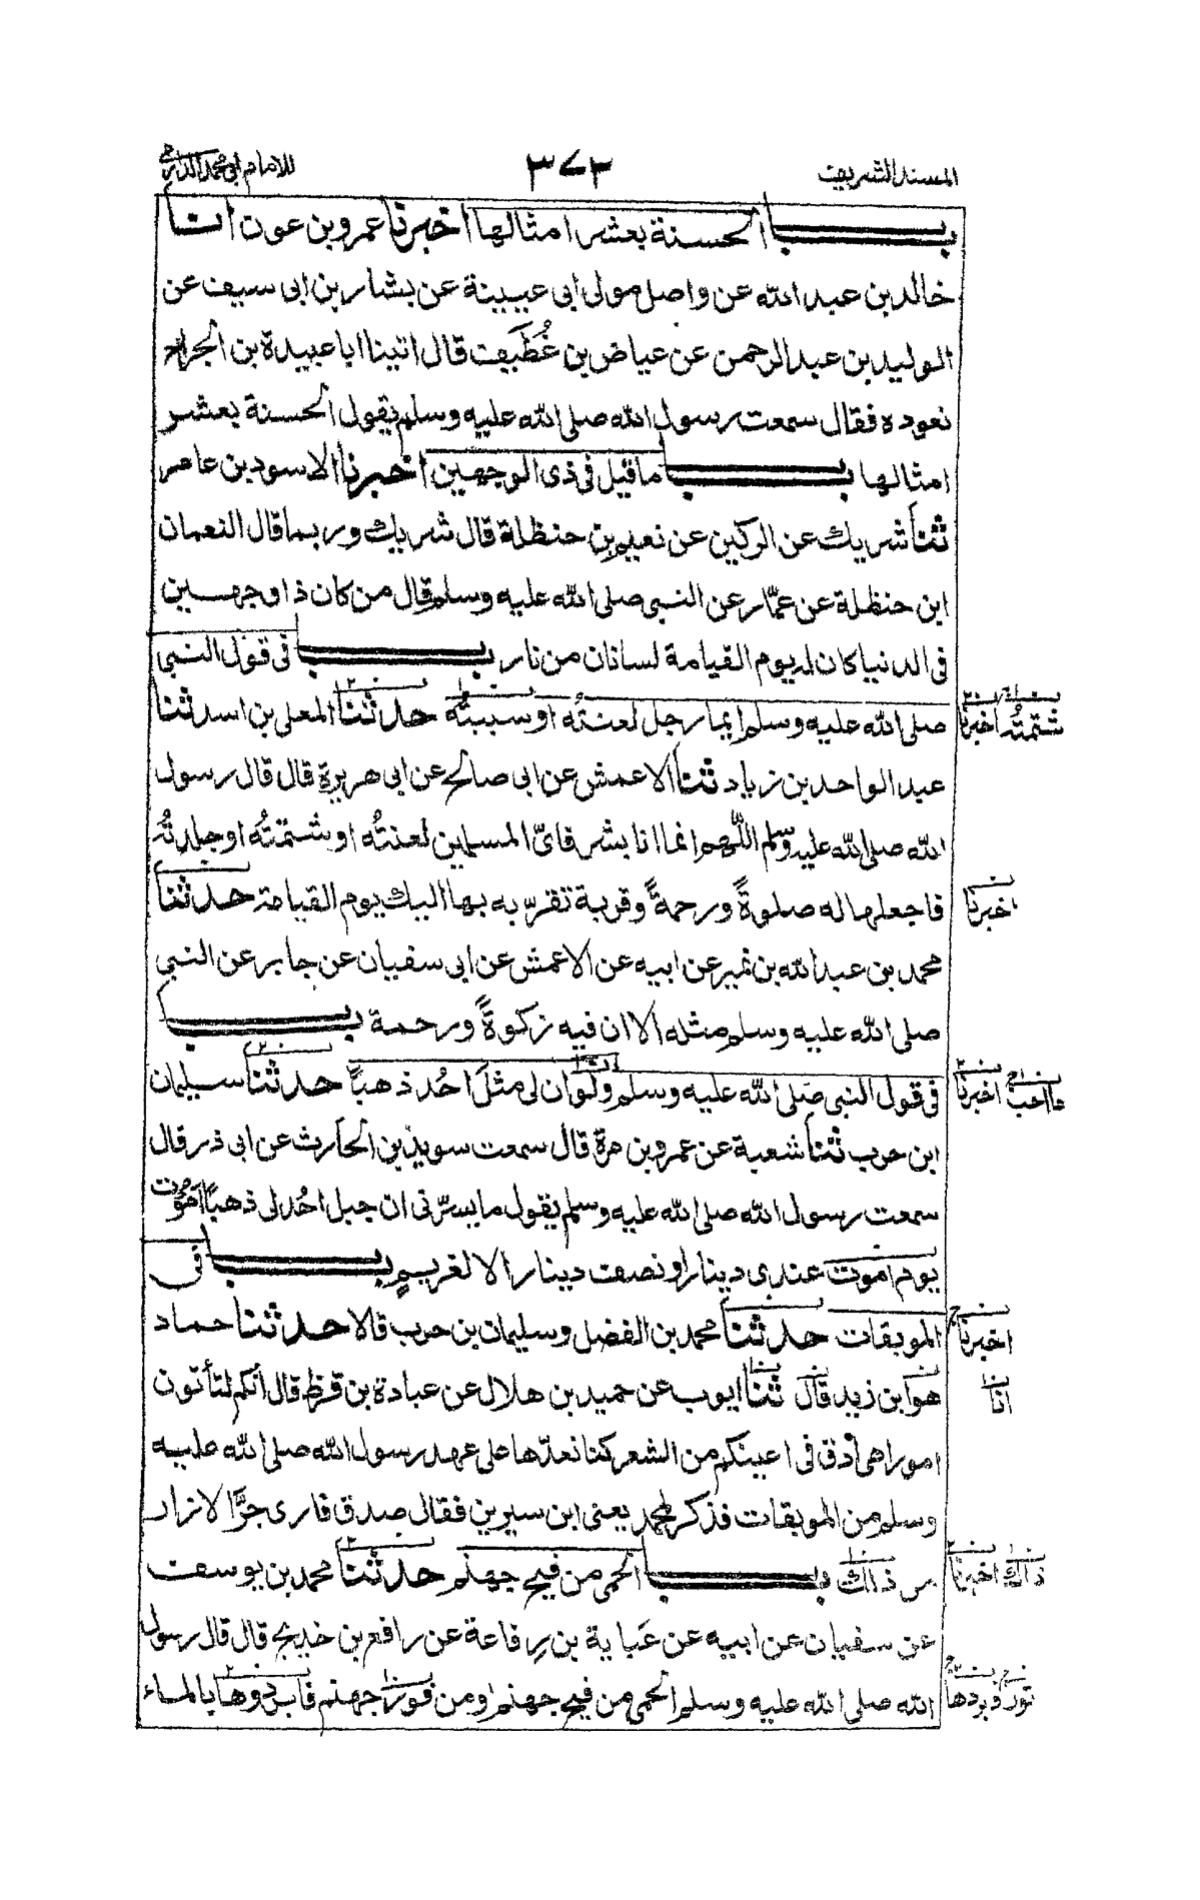 المسند الشريف ٣٧٢ للامام ابي محمد الدارمي
باب الحسنة بعشر امثالها اخبرنا عمرو بن عون انا
خالد بن عبد الله عن واصل مولى ابى عيينة عن بشار بن ابى سيف عن
الوليد بن عبد الرحمن عن عياض بن غُطَيف قال اتينا ابا عبيدة بن الجراح
نعوده فقال سمعت رسول الله صلى الله عليه وسلم يقول الحسنة بعشر
امثالها باب ما قيل فى ذى الوجهين اخبرنا الاسود بن عامر
ثنا شريك عن الركين عن نعيم بن حنظلة قال شريك وربما قال النعمان
ابن حنظلة عن عمّار عن النبى صلى الله عليه وسلم قال من كان ذا وجهين
فى الدنيا كان له يوم القيامة لسانان من نار باب فى قول النبى
صلى الله عليه وسلم ايما رجل لعنتُه او سببتُه حدثنا المعلى بن اسد ثنا
شتمتُه اخبرنا
عبد الواحد بن زياد ثنا الاعمش عن ابى صالح عن ابى هريرة قال قال رسول
الله صلى الله عليه وسلم اللّٰهم انما انا بشر فاىّ المسلمين لعنتُه او شتمتُه او جلدتُه
فاجعلها له صلوةً ورحمةً وقربة تقرّبه بها اليك يوم القيامة حدثنا
اخبرنا
محمد بن عبد الله بن نمير عن ابيه عن الاعمش عن ابى سفيان عن جابر عن النبى
صلى الله عليه وسلم مثله الا ان فيه زكوةً ورحمة باب
فى قول النبى صلى الله عليه وسلم ولو ان لى مثلَ احُد ذهباً حدثنا سليمان
ما احب اخبرنا
ابن حرب ثنا شعبة عن عمرو بن مرة قال سمعت سويد بن الحارث عن ابى ذر قال
سمعت رسول الله صلى الله عليه وسلم يقول ما يسرّنى ان جبل احُد لى ذهبًا اموت
يوم اموت عندى دينار او نصف دينار الا لغريمٍ باب فى
الموبقات حدثنا محمد بن الفضل وسليمان بن حرب قالا حدثنا حماد
اخبرنا
هو ابن زيد قال ثنا ايوب عن حميد بن هلال عن عبادة بن قرط قال انكم لتأتون
انا
امورا هى أدق فى اعينكم من الشعر كنا نعدّها على عهد رسول الله صلى الله عليه
وسلم من الموبقات فذكر لمحمد يعنى ابن سيرين فقال صدق فارى جرَّ الازار
من ذلك باب الحمى من فيح جهنم حدثنا محمد بن يوسف
ذاك اخبرنا
عن سفيان عن ابيه عن عَباية بن رِفاعة عن رافع بن خديج قال قال رسول
الله صلى الله عليه وسلم الحمى من فيح جهنم او من فور جهنم فابردوها بالماء